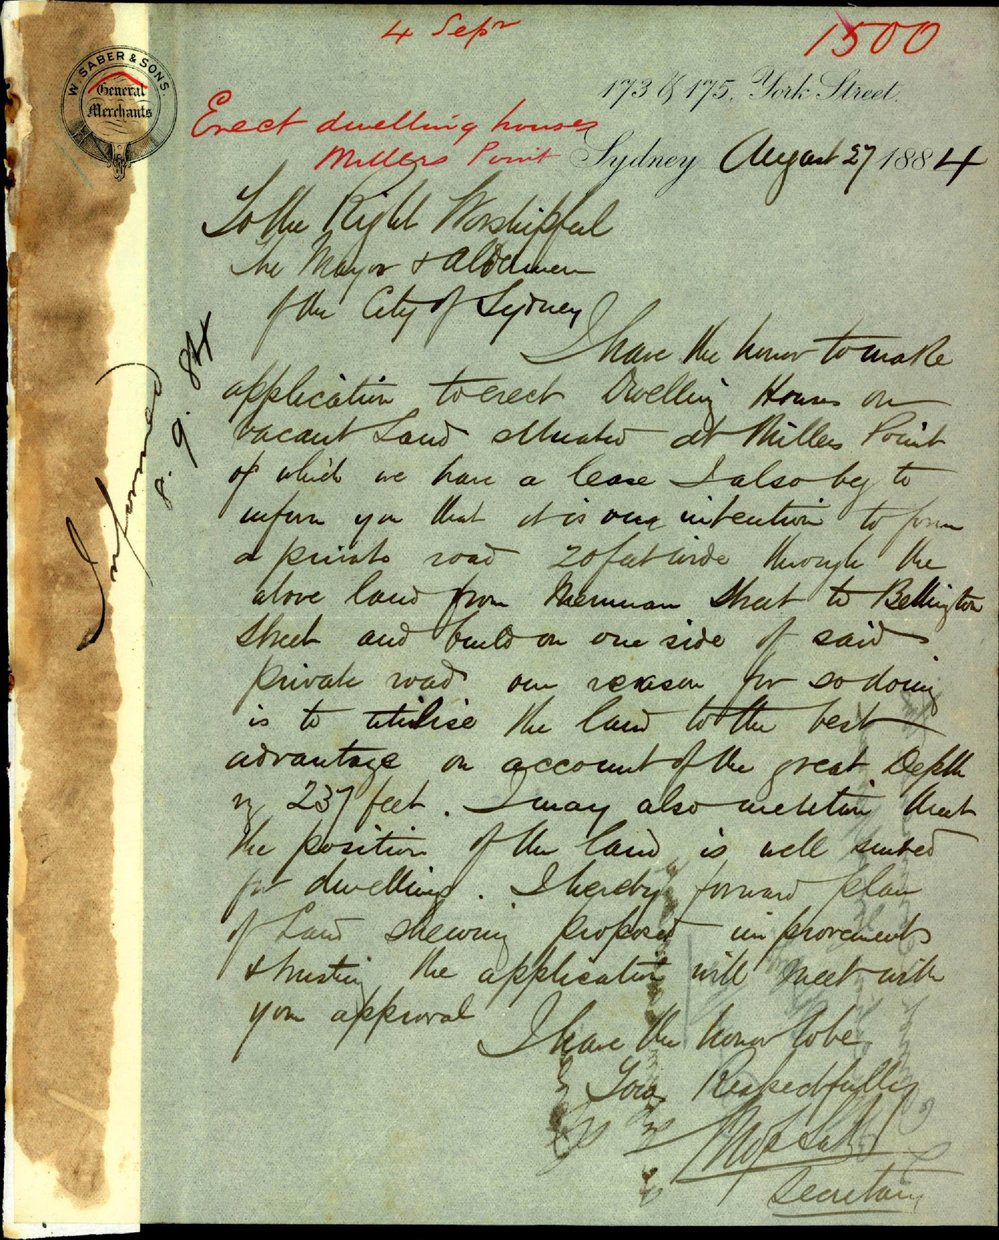 4 Sepr
1500
W. SABER & SONS.
General
Merchants
173 & 175, York Street,
Erect dwelling houses
Millers Point
Sydney August 27 1884
To the Right Worshipful
The Mayor & Aldermen
of the City of Sydney
I have the honor to make
application to erect Dwelling Houses on
vacant Land situated at Millers Point
of which we have a lease I also beg to
inform you that it is our intention to form
a private road 20 feet wide through the
above land from Merriman Street to Bettington
Street and build on one side of said
private road our reason for so doing
is to utilise the land to the best
advantage on account of the great Depth
237 feet. I may also mention that
the position of the land is well suited
for dwellings. I hereby forward plan
of Land shewing proposed improvements
& trusting the application will meet with
your approval
I have the honor to be
Yours Respectfully
Secretary
Informed
8.9.84